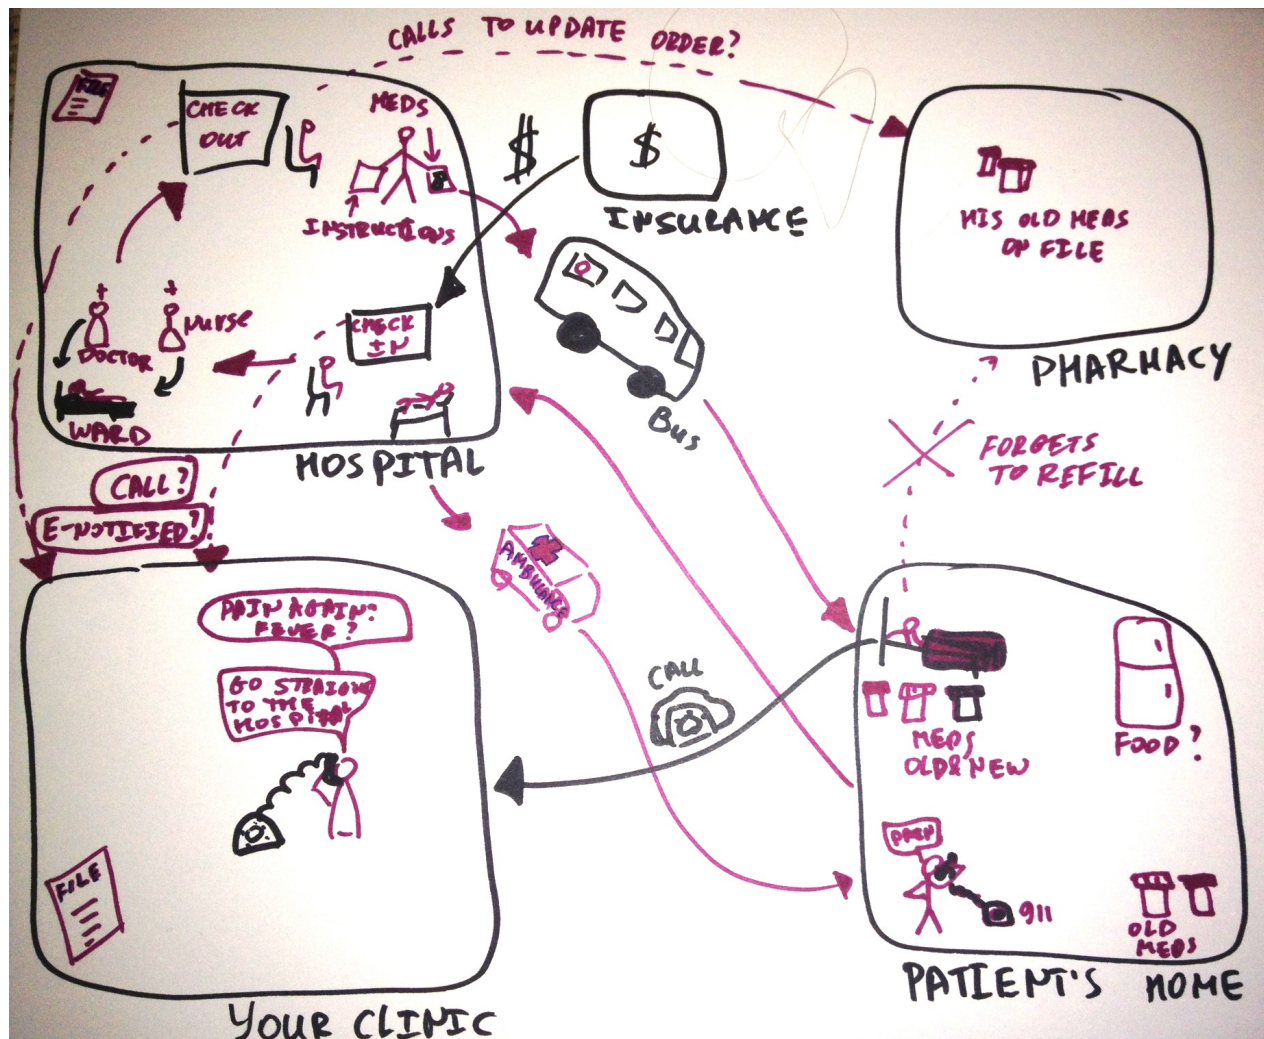 CALLS TO UPDATE ORDER?
FILE
CHECK
OUT
MEDS
INSTRUCTIONS
$
$
INSURANCE
HIS OLD MEDS
ON FILE
PHARMACY
DOCTOR
NURSE
WARD
CHECK
IN
HOSPITAL
BUS
FORGETS
TO REFILL
CALL?
E-NOTIFIED?
AMBULANCE
PAIN AGAIN?
FEVER?
GO STRAIGHT
TO THE
HOSPITAL
FILE
YOUR CLINIC
CALL
MEDS
OLD & NEW
FOOD?
PAIN
911
OLD
MEDS
PATIENT'S HOME